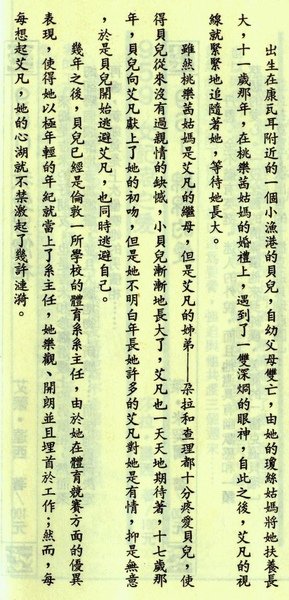 出生在康瓦耳附近的一個小漁港的貝兒，自幼父母雙亡，由她的瓊絲姑媽將她扶養長
大，十一歲那年，在桃樂茜姑媽的婚禮上，遇到了一雙深炯的眼神，自此之後，艾凡的視
線就緊緊地追隨著她，等待她長大。
雖然桃樂茜姑媽是艾凡的繼母，但是艾凡的姊弟——朶拉和查理都十分疼愛貝兒，使
得貝兒從來沒有過親情的缺憾，小貝兒漸漸地長大了，艾凡也一天天地期待著，十七歲那
年，貝兒向艾凡獻上了她的初吻，但是她不明白年長她許多的艾凡對她是有情，抑是無意
，於是貝兒開始逃避艾凡，也同時逃避自己。
幾年之後，貝兒已經是倫敦一所學校的體育系系主任，由於她在體育競賽方面的優異
表現，使得她以極年輕的年紀就當上了系主任，她樂觀、開朗並且埋首於工作；然而，每
每想起艾凡，她的心湖就不禁激起了幾許漣漪。